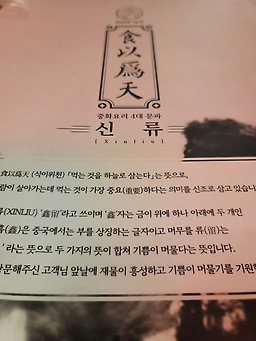 食以爲天
중화요리 4대 문파
신 류
[Xinliu]
食以爲天 (식이위천) 「먹는 것을 하늘로 삼는다」는 뜻으로,
람이 살아가는데 먹는 것이 가장 중요(重要)하다는 의미를 신조로 삼고 있습니
류(XINLIU) '鑫留'라고 쓰이며 '鑫'자는 금이 위에 하나 아래에 두 개인
흠(鑫)은 중국에서는 부를 상징하는 글자이고 머무를 류(留)는
' 라는 뜻으로 두 가지의 뜻이 합쳐 기쁨이 머물다는 뜻입니다.
문해주신 고객님 앞날에 재물이 흥성하고 기쁨이 머물기를 기원